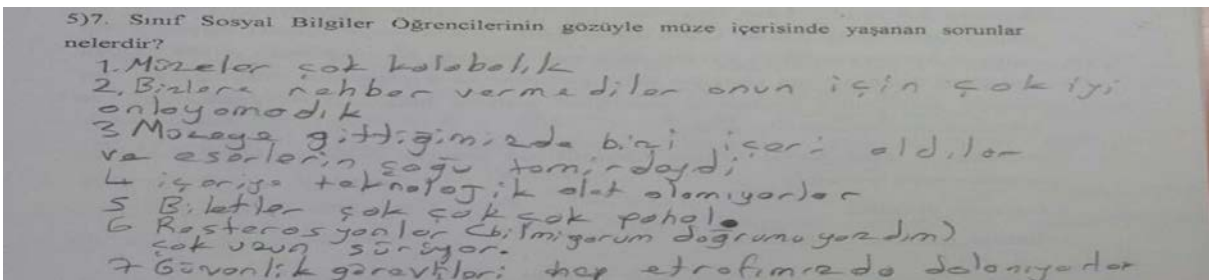 5)7. Sınıf Sosyal Bilgiler Öğrencilerinin gözüyle müze içerisinde yaşanan sorunlar
nelerdir?
1. Müzeler çok kalabalık
2. Bizlere rehber vermediler onun için çok iyi
anlayamadık
3 Müzeye gittiğimizde bizi içeri aldılar
ve eserlerin çoğu tamirdaydı
4 içeriye teknolojik alet alamıyorlar
5 Biletler çok çok çok pahalı.
6 Rasterosyonlar (bilmiyorum doğrumu yazdım)
çok uzun sürüyor.
7 Güvenlik görevlileri hep etrafımızda dolanıyorlar